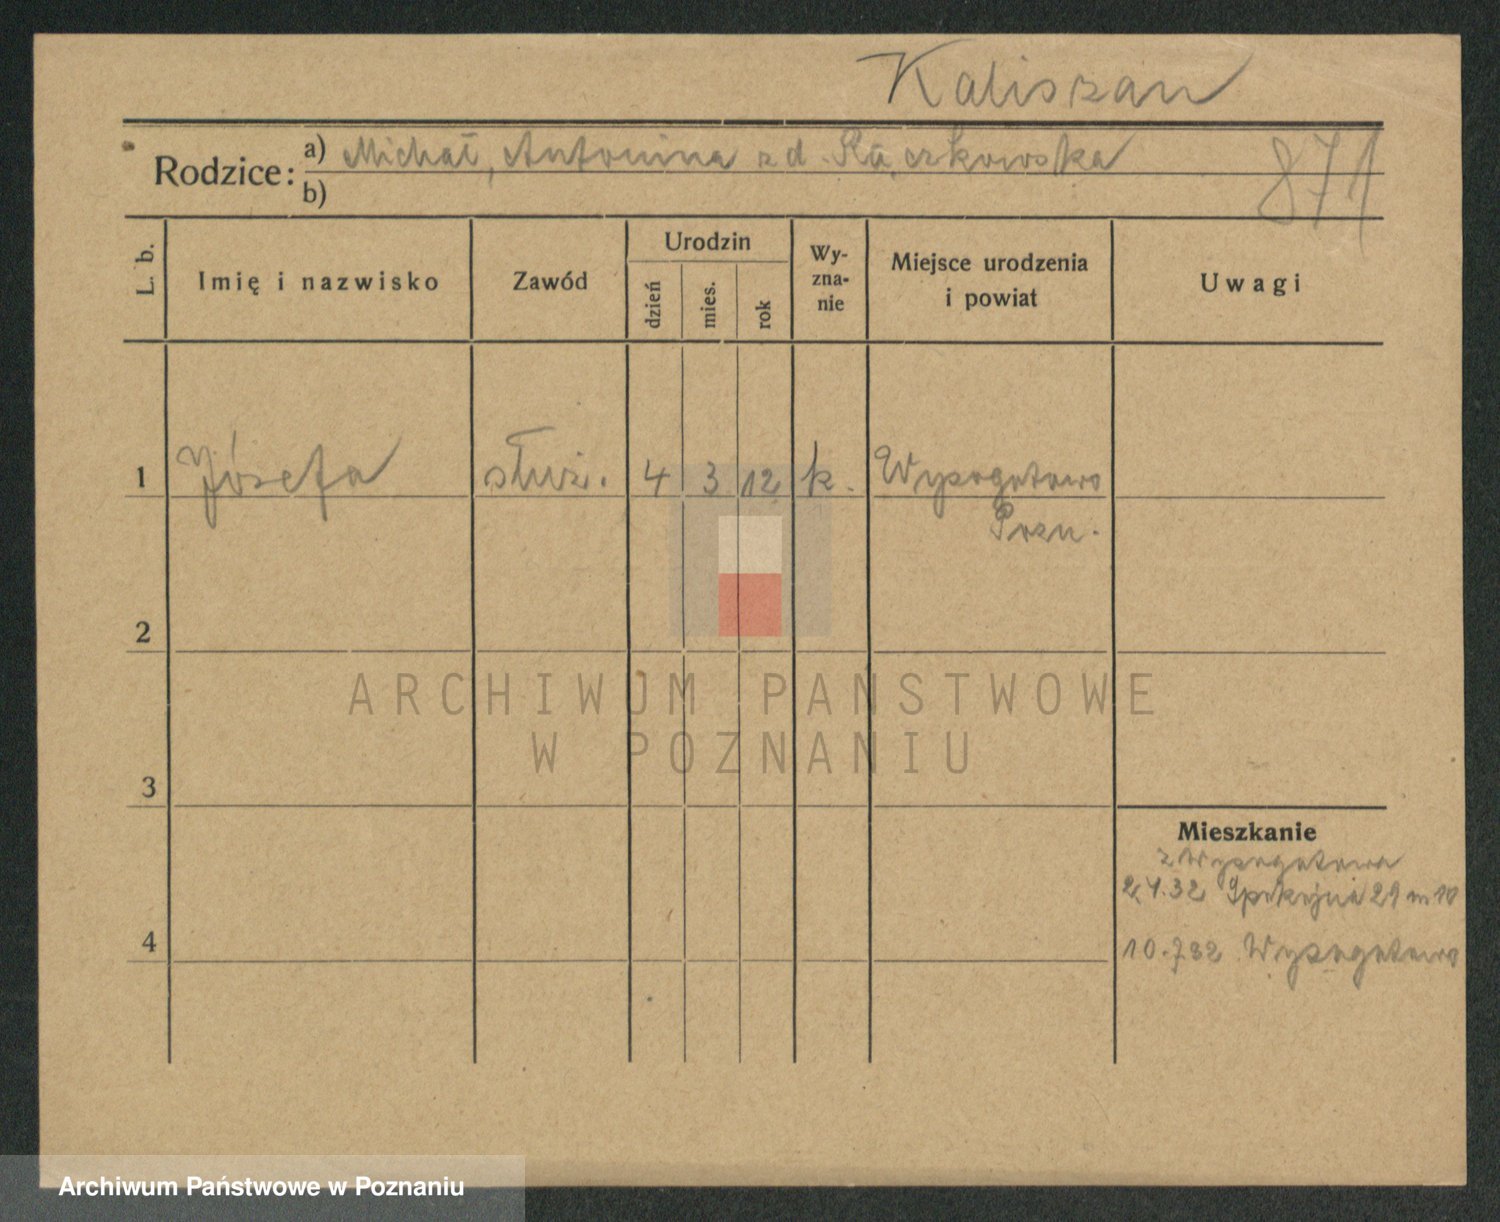 Kaliszan
Rodzice: a) Michał, Antonina zd. Rączkowska
b)
871
L. b.
Imię i nazwisko
Zawód
Urodzin
dzień
mies.
rok
Wy-
zna-
nie
Miejsce urodzenia
i powiat
Uwagi
1 Józefa służ. 4 3 12 k. Wysogotowo
Pozn.
2
ARCHIWUM PAŃSTWOWE
W POZNANIU
3
Mieszkanie
z Wysogotowa
2.4.32 Spokojna 29 m 10
4
10.732 Wysogotowo
Archiwum Państwowe w Poznaniu